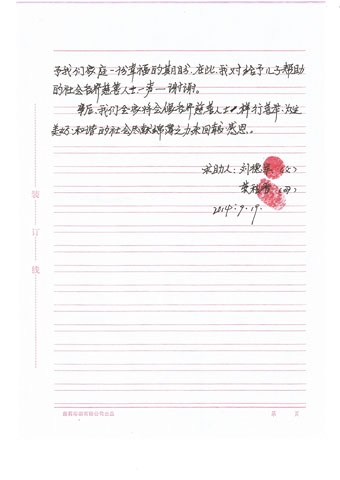 予我们家庭一份幸福的期盼,在此,我对给予儿子帮助
的社会各界慈善人士一声—谢谢。
事后,我们全家将会像各界慈善人士一样行慈善,为这
美好和谐的社会尽献绵薄之力来回报感恩。
求助人:刘德 (父)
(母)
2014.9.19.
装
订
线
第 页